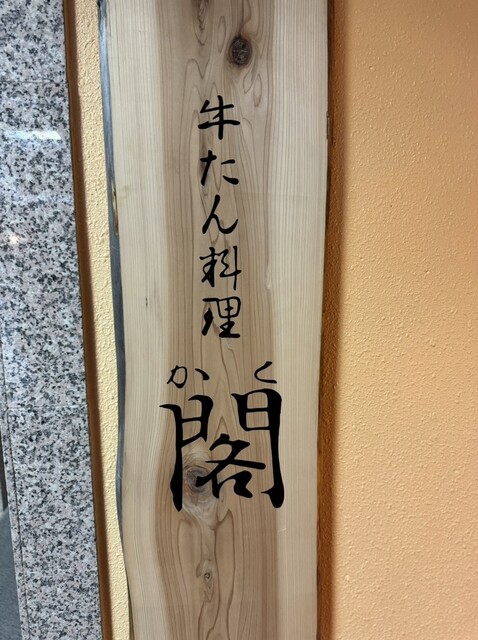 牛たん料理
かく
閣